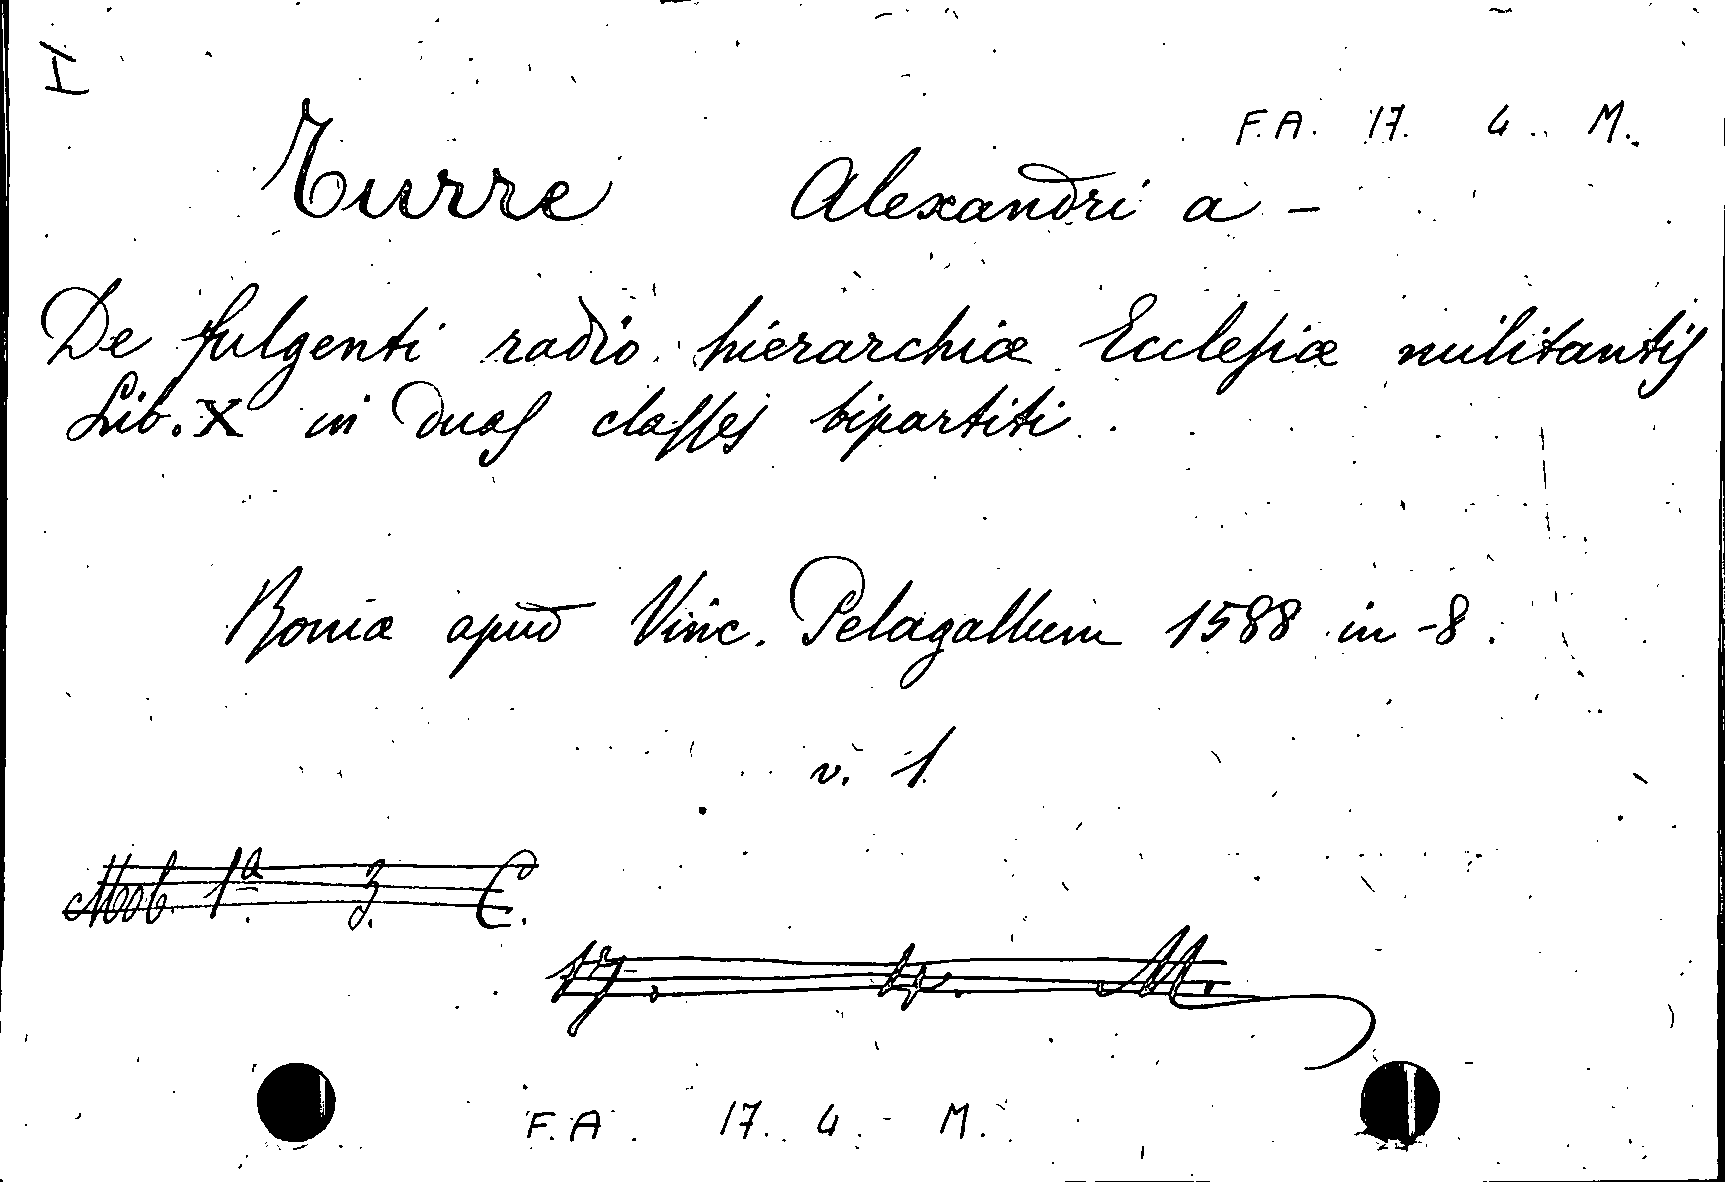 F.A. 17. 4. M.
Turre Alexandri a -
De fulgenti radio hierarchiæ Ecclesiæ militantis
Lib. X in duas classes bipartiti
Romæ apud Vinc. Pelagallum 1588 in-8.
v. 1
Mob. 1ª 3. C.
17. 4. M.
F.A. 17. 4. M.